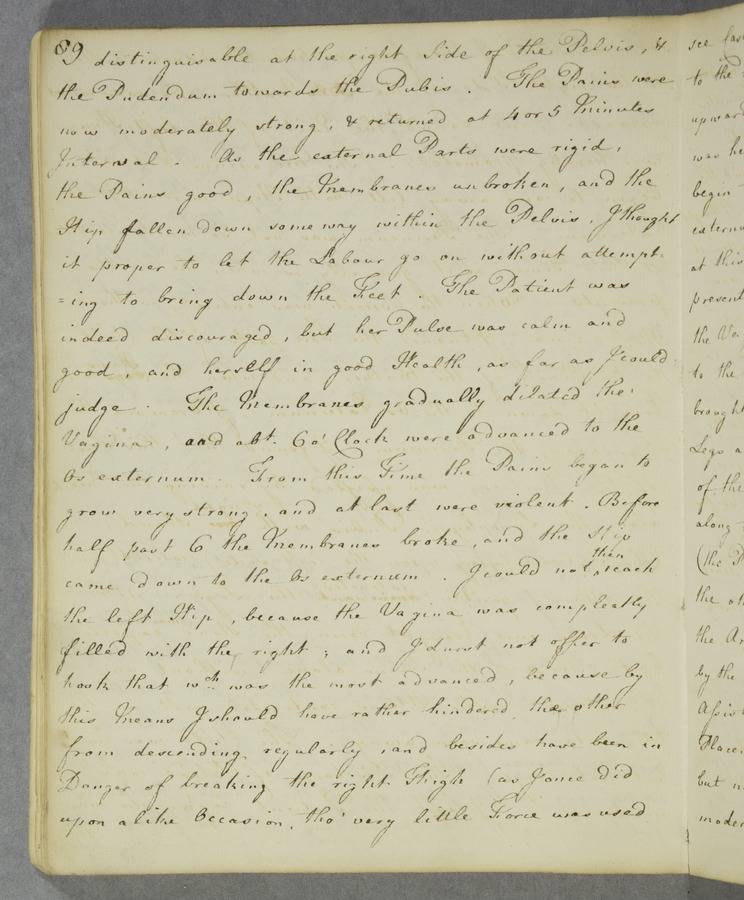 89 distinguisable at the right Side of the Pelvis, &
the Pudendum towards the Pubis. The Pains were
now moderately strong, & returned at 4 or 5 Minutes
Interval. As the external Parts were rigid,
the Pains good, the Membranes unbroken, and the
Hip fallen down some way within the Pelvis, I thought
it proper to let the Labour go on without attempt-
=ing to bring down the Feet. The Patient was
indeed discouraged, but her Pulse was calm and
good, and herself in good Health, as far as I could
judge. The Membranes gradually dilated the
Vagina, and abt. 6 o'Clock were advanced to the
Os externum. From this Time the Pains began to
grow very strong, and at last were violent. Before
half past 6 the Membranes broke, and the Hip
came down to the Os externum. I could not then reach
the left Hip, because the Vagina was compleatly
filled with the right; and I durst not offer to
hook that wch was the most advanced, because by
this Means I should have rather hindered the other
from descending regularly, and besides have been in
Danger of breaking the right Thigh (as I once did
upon a like Occasion, tho' very little Force was used
see
to the
upward
was he
begin
extern
at this
present
the Va
to the
brought
Legs a
of the
along
(the P
the ot
the Ar
by the
Assist
Place
but n
moder